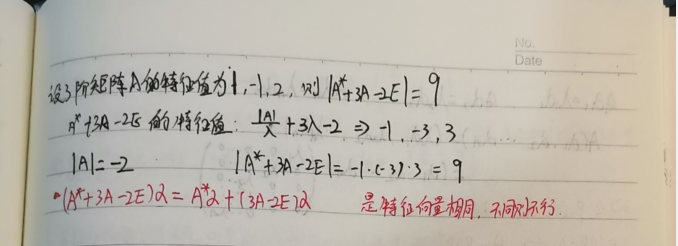 No.
Date
设3阶矩阵A的特征值为1,-1,2,则|A*+3A-2E|=9
A*+3A-2E的特征值: |A|/λ+3λ-2 ⇒ -1,-3,3
|A|=-2 |A*+3A-2E|=-1·(-3)·3=9
(A*+3A-2E)α=A*α+(3A-2E)α 是特征向量相同,不同则不行.